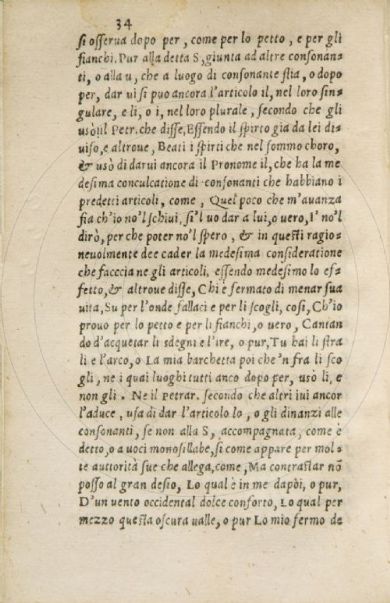 34
si osserua dopo per, come per lo petto, e per gli
fianchi. Pur alla detta S, giunta ad altre consonan=
ti, o alla u, che a luogo di consonante stia, o dopo
per, dar ui si puo ancora l'articolo il, nel loro sin=
gulare, e li, o i, nel loro plurale, secondo che gli
usò il Petr. che disse, Essendo il spirto gia da lei di=
uiso, e altroue, Beati i spirti che nel sommo choro,
& usò di darui ancora il Pronome il, che ha la me
desima conculcatione di consonanti che habbiano i
predetti articoli, come, Quel poco che m'auanza
fia ch'io no'l schiui, si'l uo dar a lui, o uero, I' no'l
dirò, per che poter no'l spero, & in questi ragio=
neuolmente dee cader la medesima consideratione
che facccia ne gli articoli, essendo medesimo lo ef=
fetto, & altroue disse, Chi è fermato di menar sua
uita, Su per l'onde fallaci e per li scogli, cosi, Ch'io
prouo per lo petto e per li fianchi, o uero, Cantan
do d'acquetar li sdegni e l'ire, o pur, Tu hai li stra
li e l'arco, o La mia barchetta poi che'n fra li sco
gli, ne i quai luoghi tutti anco dopo per, usò li, e
non gli. Ne il Petrar. secondo che altri iui ancor
l'aduce, usa di dar l'articolo lo, o gli dinanzi alle
consonanti, se non alla S, accompagnata, come è
detto, o a uoci monosillabe, si come appare per mol=
te autorità sue che allega, come, Ma contrastar nõ
posso al gran desio, Lo qual è in me dapòi, o pur,
D'un uento occidental dolce conforto, Lo qual per
mezzo questa oscura ualle, o pur Lo mio fermo de